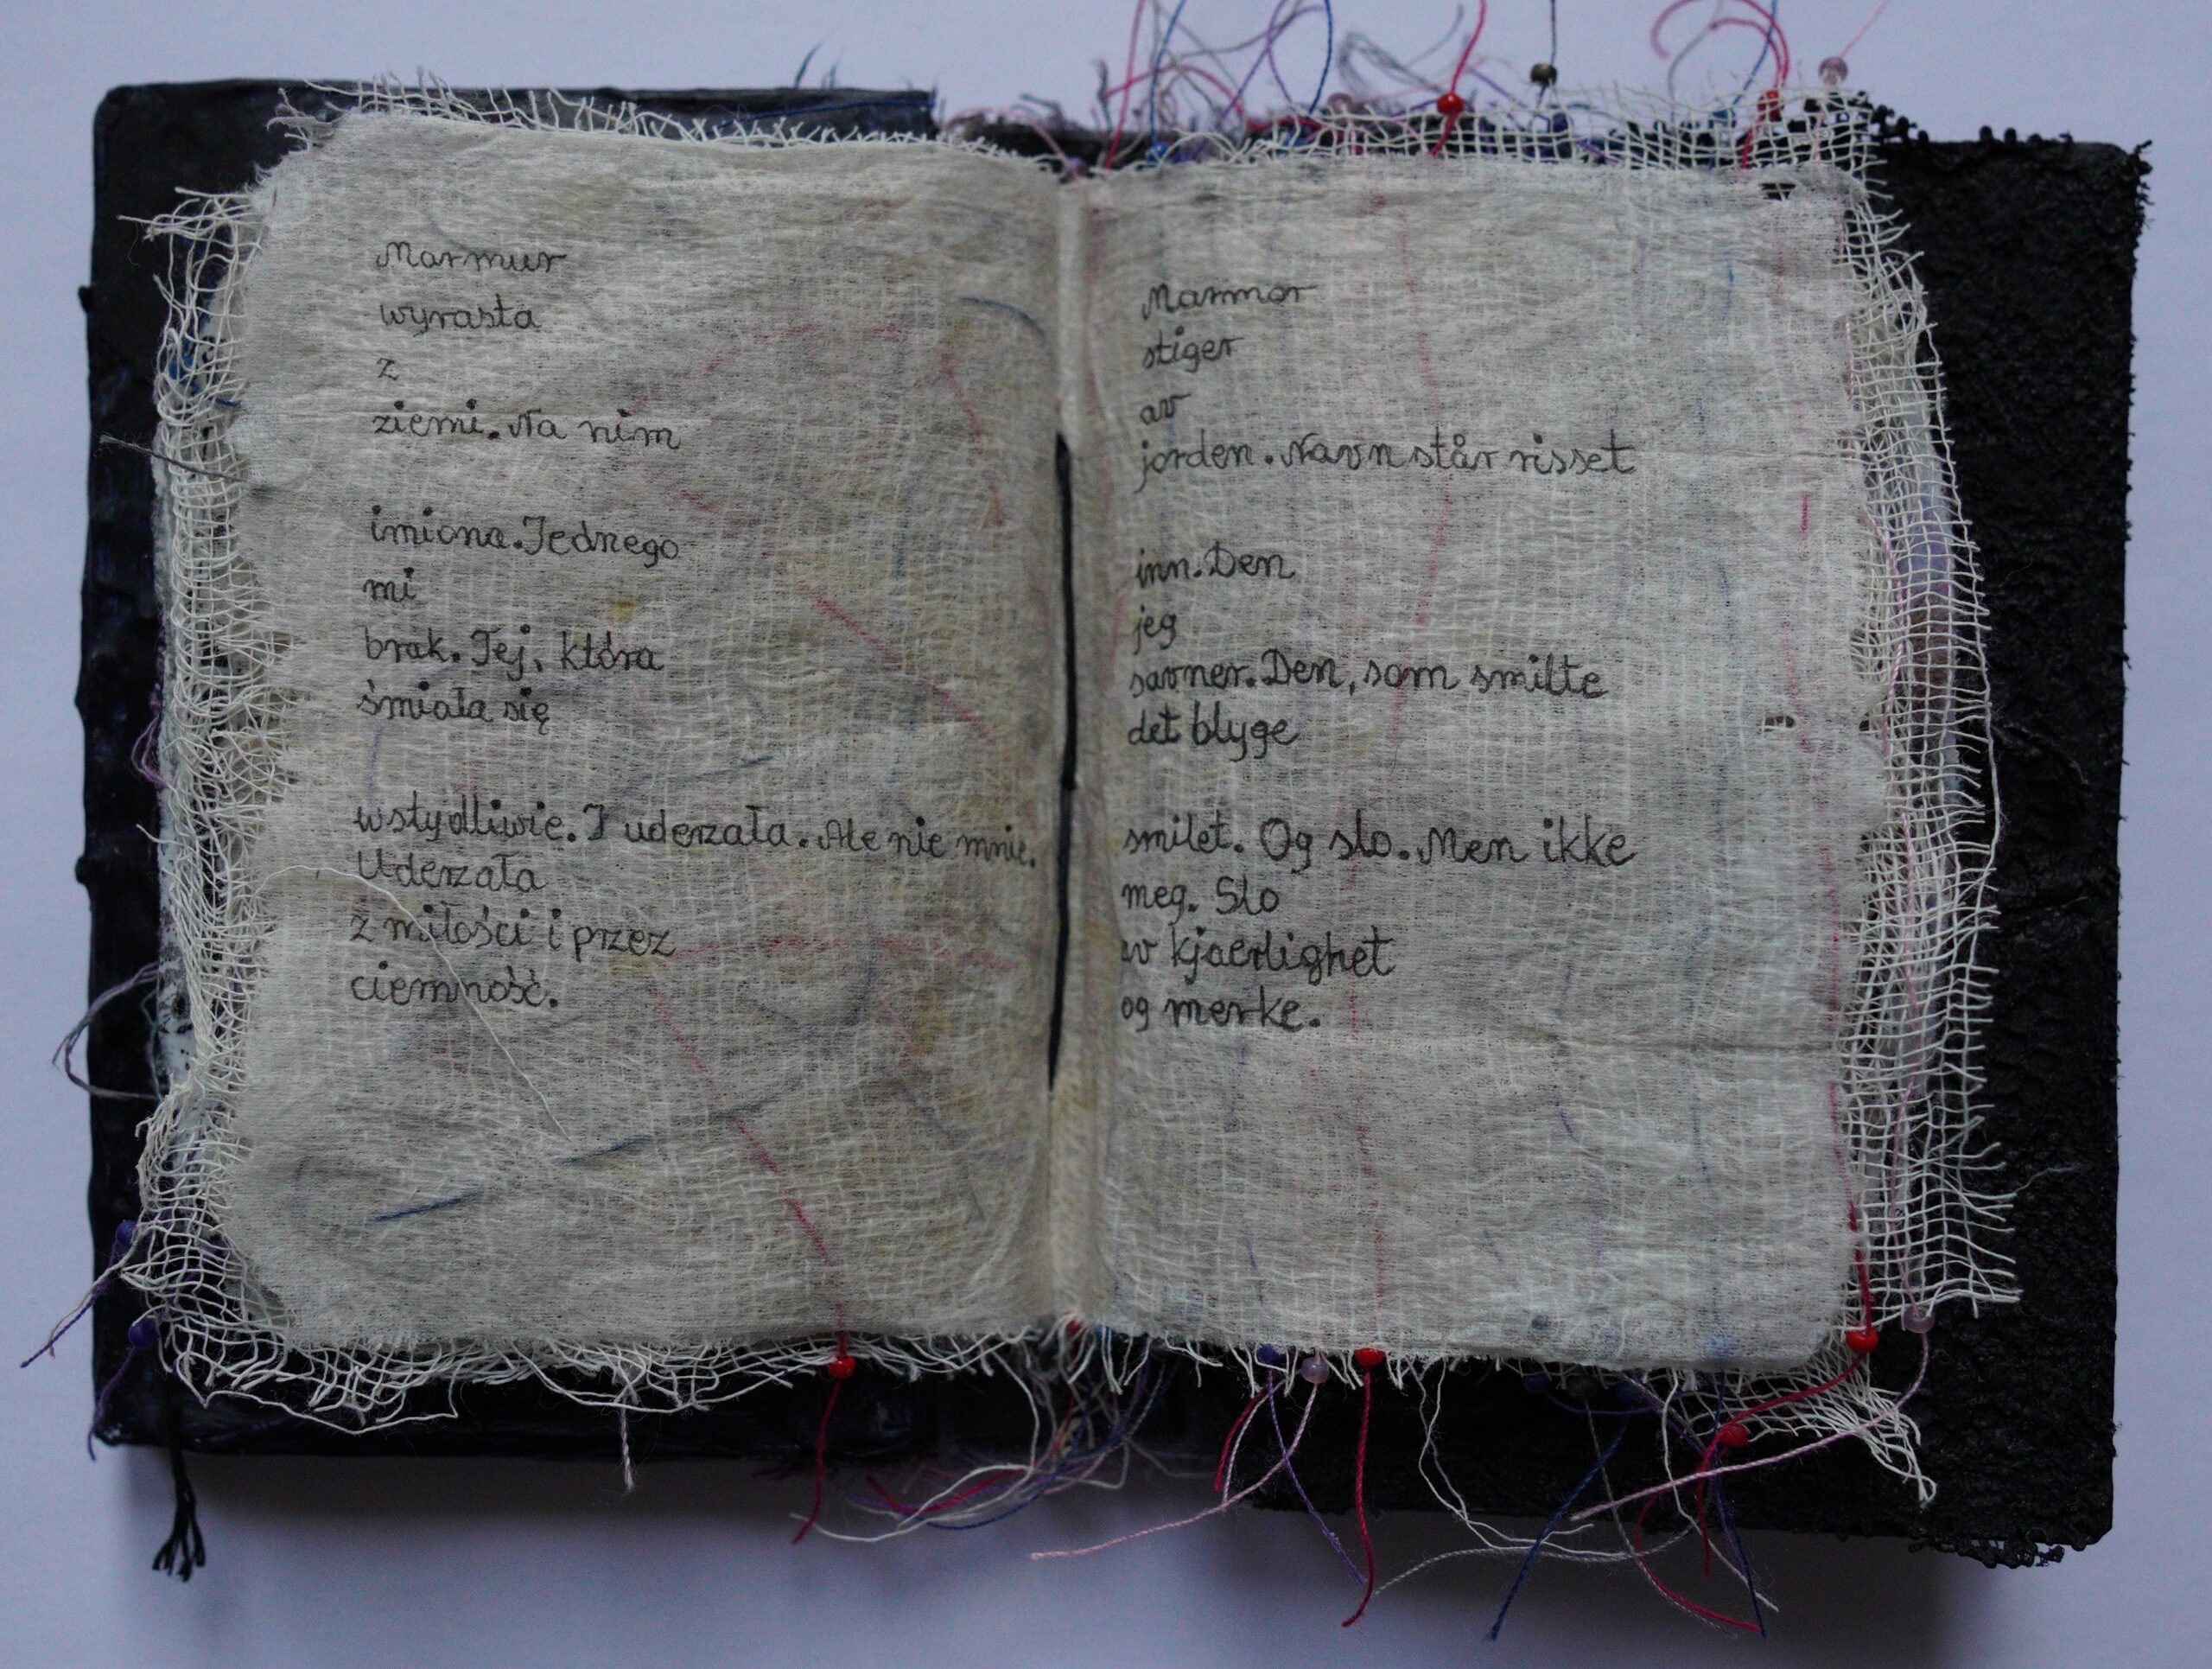 Marmur
wyrasta
z
ziemi. Na nim
imiona. Jednego
mi
brak. Tej, która
śmiała się
wstydliwie. I uderzała. Ale nie mnie.
Uderzała
z miłości i przez
ciemność.
Marmor
stiger
av
jorden. Navn står risset
inn. Den
jeg
savner. Den, som smilte
det blyge
smilet. Og slo. Men ikke
meg. Slo
av kjaerlighet
og mørke.